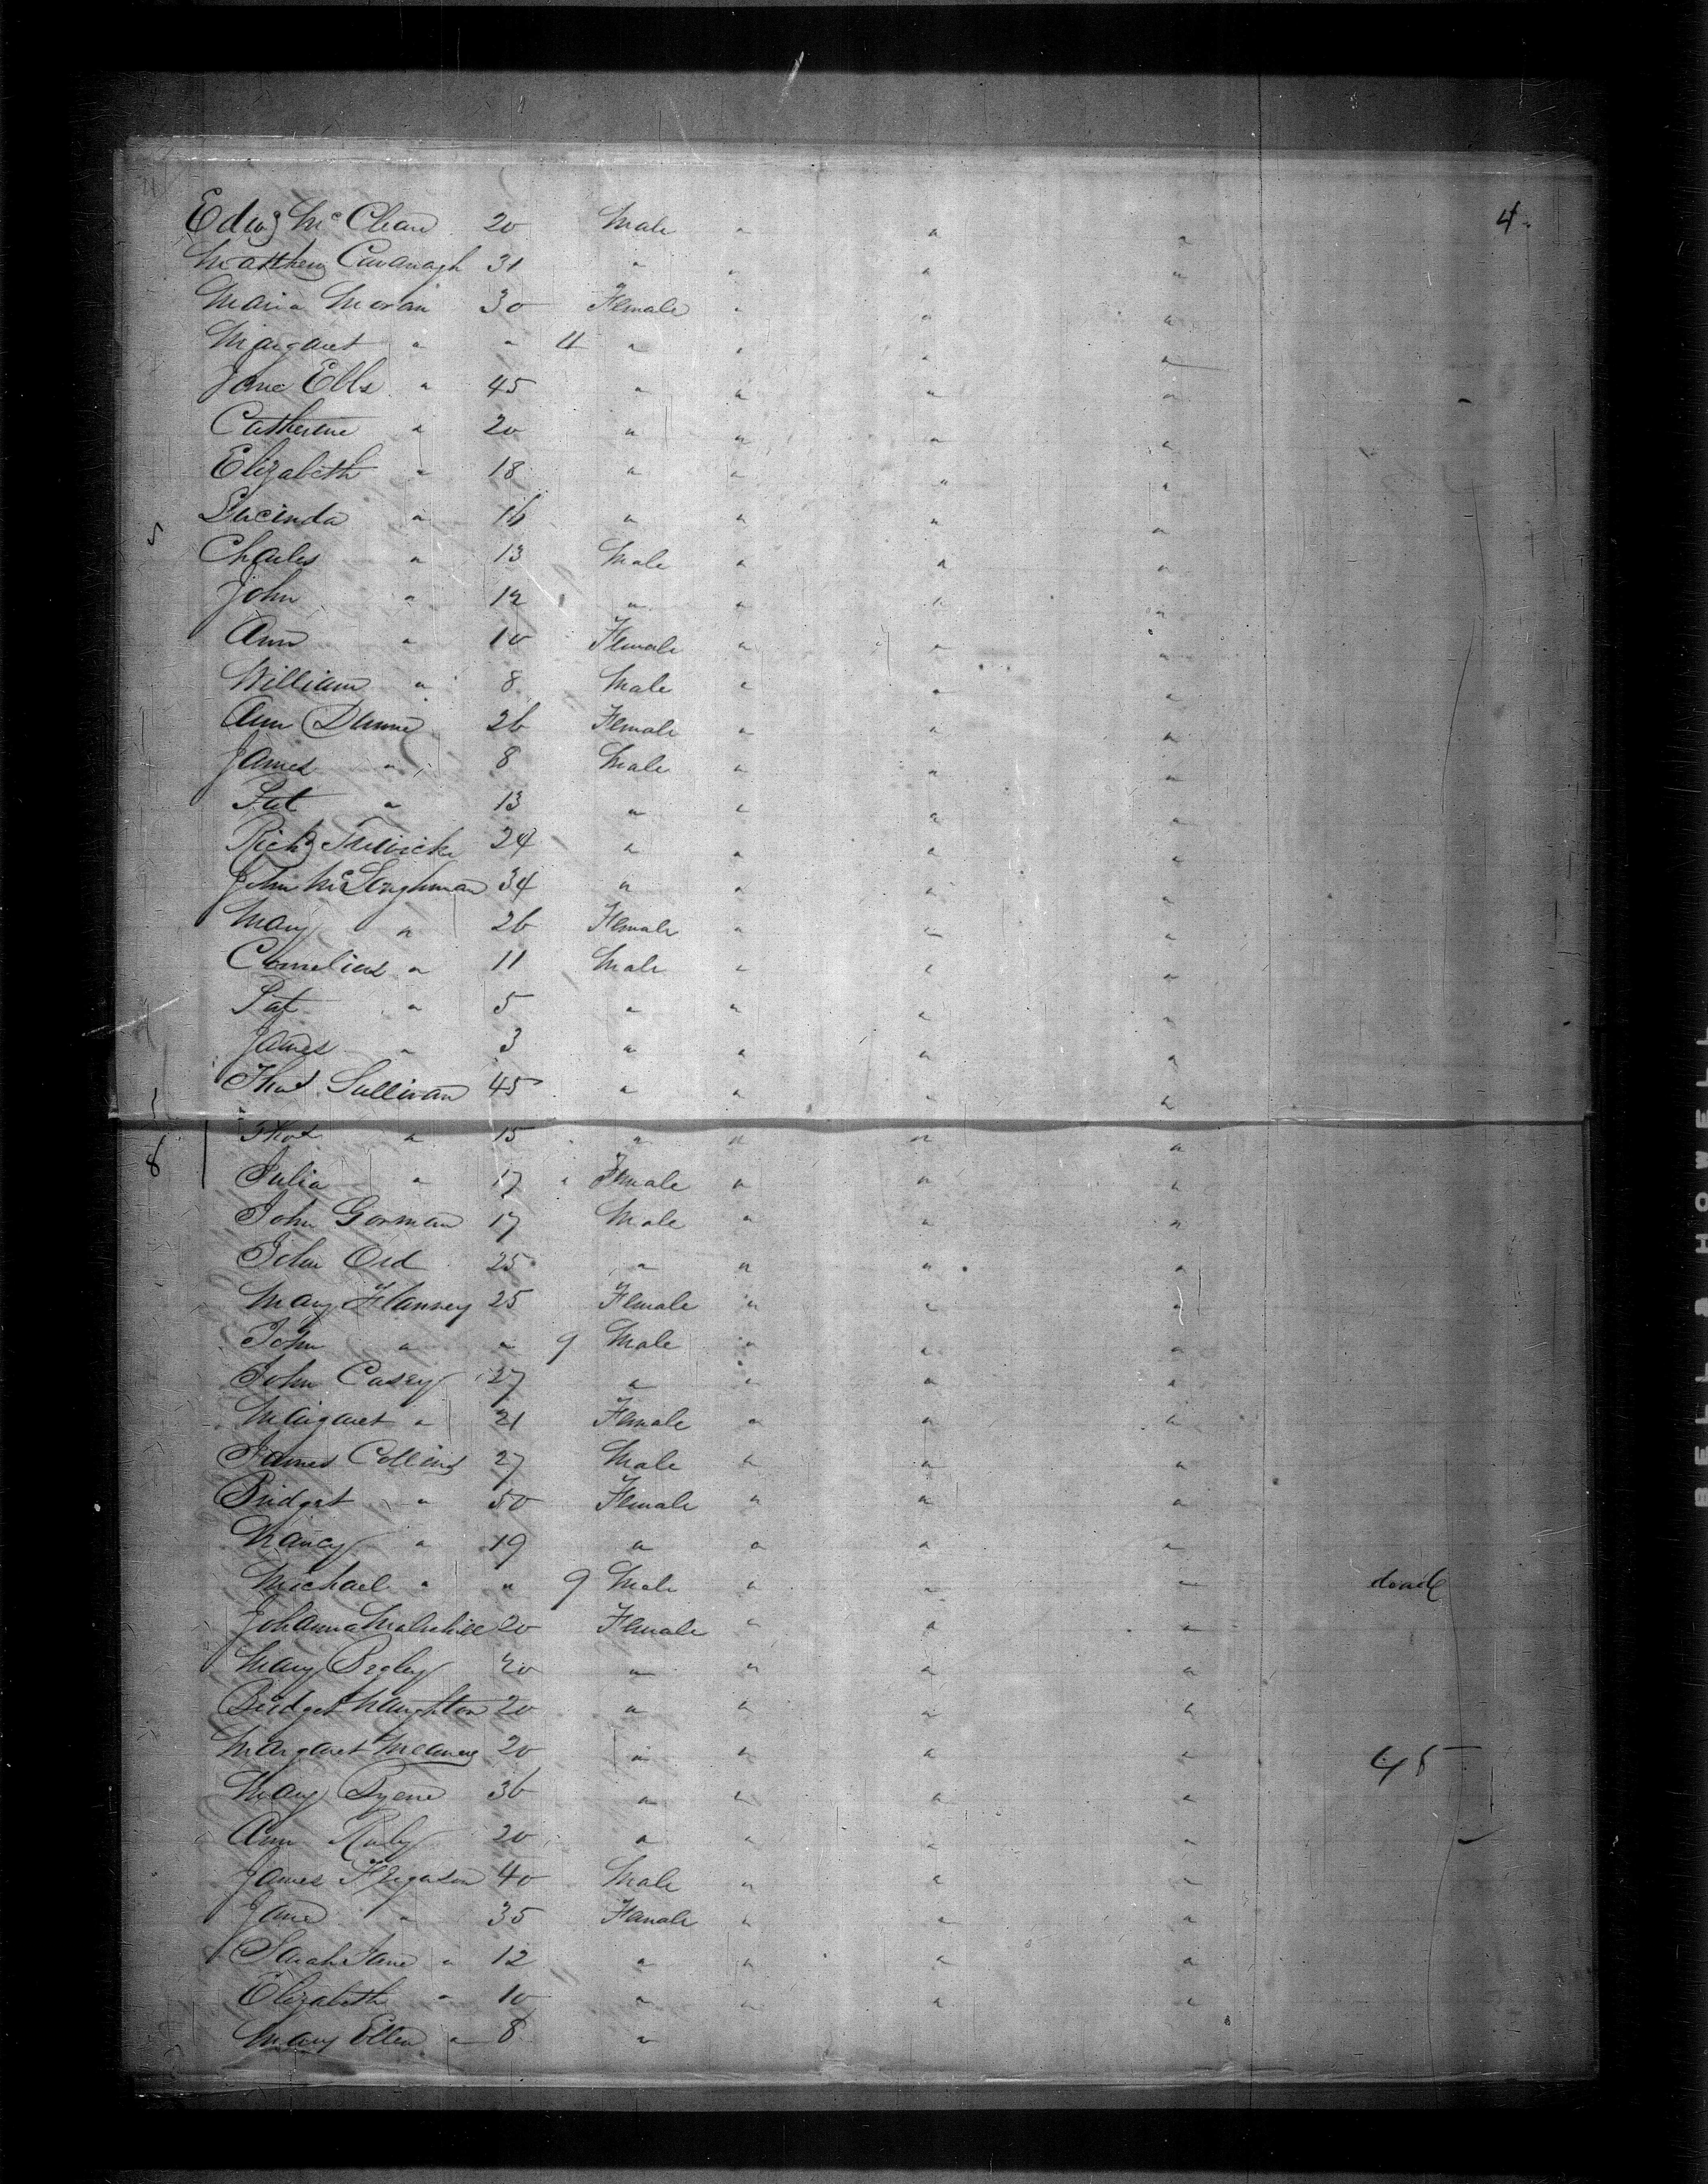 4
Edwd McClean 20 Male " " "
Matthew Cavanagh 31 " " " "
Maria Moran 30 Female " " "
Margaret " " 11 " " " "
Jane Ells " 45 " " " "
Catherine " 20 " " " "
Elizabeth " 18 " " " "
Lucinda " 16 " " " "
Charles " 13 Male " " "
John " 12 " " " "
Ann " 10 Female " " "
William " 8 Male " " "
Ann Dunne 26 Female " " "
James " 8 Male " " "
Pat " 13 " " " "
Richd 24 " " " "
John 34 " " " "
Mary " 26 Female " " "
Cornelius " 11 Male " " "
Pat " 5 " " " "
James " 3 " " " "
Thos Sullivan 45 " " " "
Thos " 15 " " " "
8
Julia " 17 Female " " "
John Gorman 17 Male " " "
John Ord 25 " " " "
Mary Flannery 25 Female " " "
John " " 9 Male " " "
John Casey 27 " " " "
Margaret " 21 Female " " "
James Collins 27 Male " " "
Bridget " 50 Female " " "
Nancy " 19 " " " "
Michael " " 9 Male " " " dead
Johanna 20 Female " " "
Mary Begley 20 " " " "
Bridget Naughton 20 " " " "
Margaret 20 " " " "
45
Mary Byrne 36 " " " "
Ann 20 " " " "
James Fergason 40 Male " " "
Jane " 35 Female " " "
Sarah Jane " 12 " " " "
Elizabeth " 10 " " " "
Mary Ellen " 8 "
BELL & HOWELL